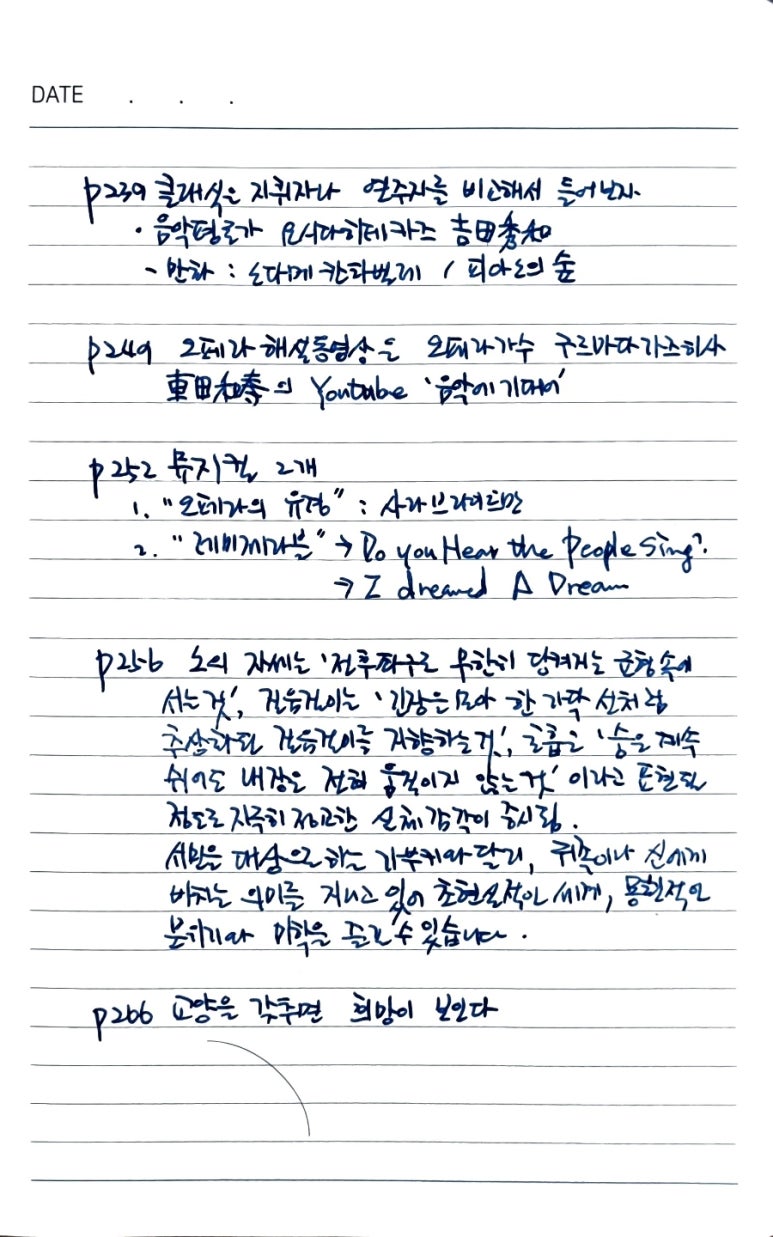 DATE . . .
p239 클래식은 지휘자나 연주자를 비교해서 들어보자.
· 음악평론가 요시다히데카즈 吉田秀和
- 만화 : 노다메 칸타빌레 / 피아노의 숲
p249 오페라 해설동영상은 오페라가수 구루마다가즈히사
車田和寿의 Youtube '음악에 기대어'
p252 뮤지컬 2개
1. "오페라의 유령" : 사라브라이트만
2. "레미제라블" → Do you Hear the People Sing?.
→ I dreamed A Dream
p256 노의 자세는 '전후좌우로 무한히 당겨지는 균형 속에
서는 것', 걸음걸이는 '긴장을 모아 한 가닥 선처럼
추상화된 걸음걸이를 지향하는 것', 호흡은 '숨은 계속
쉬어도 내장은 전혀 움직이지 않는 것' 이라고 표현될
정도로 지극히 정교한 신체감각이 중시됨.
서민을 대상으로 하는 가부키와 달리, 귀족이나 신에게
바치는 의미를 지니고 있어 초현실적인 세계, 몽환적인
분위기와 미학을 즐길 수 있습니다.
p266 교양을 갖추면 희망이 보인다